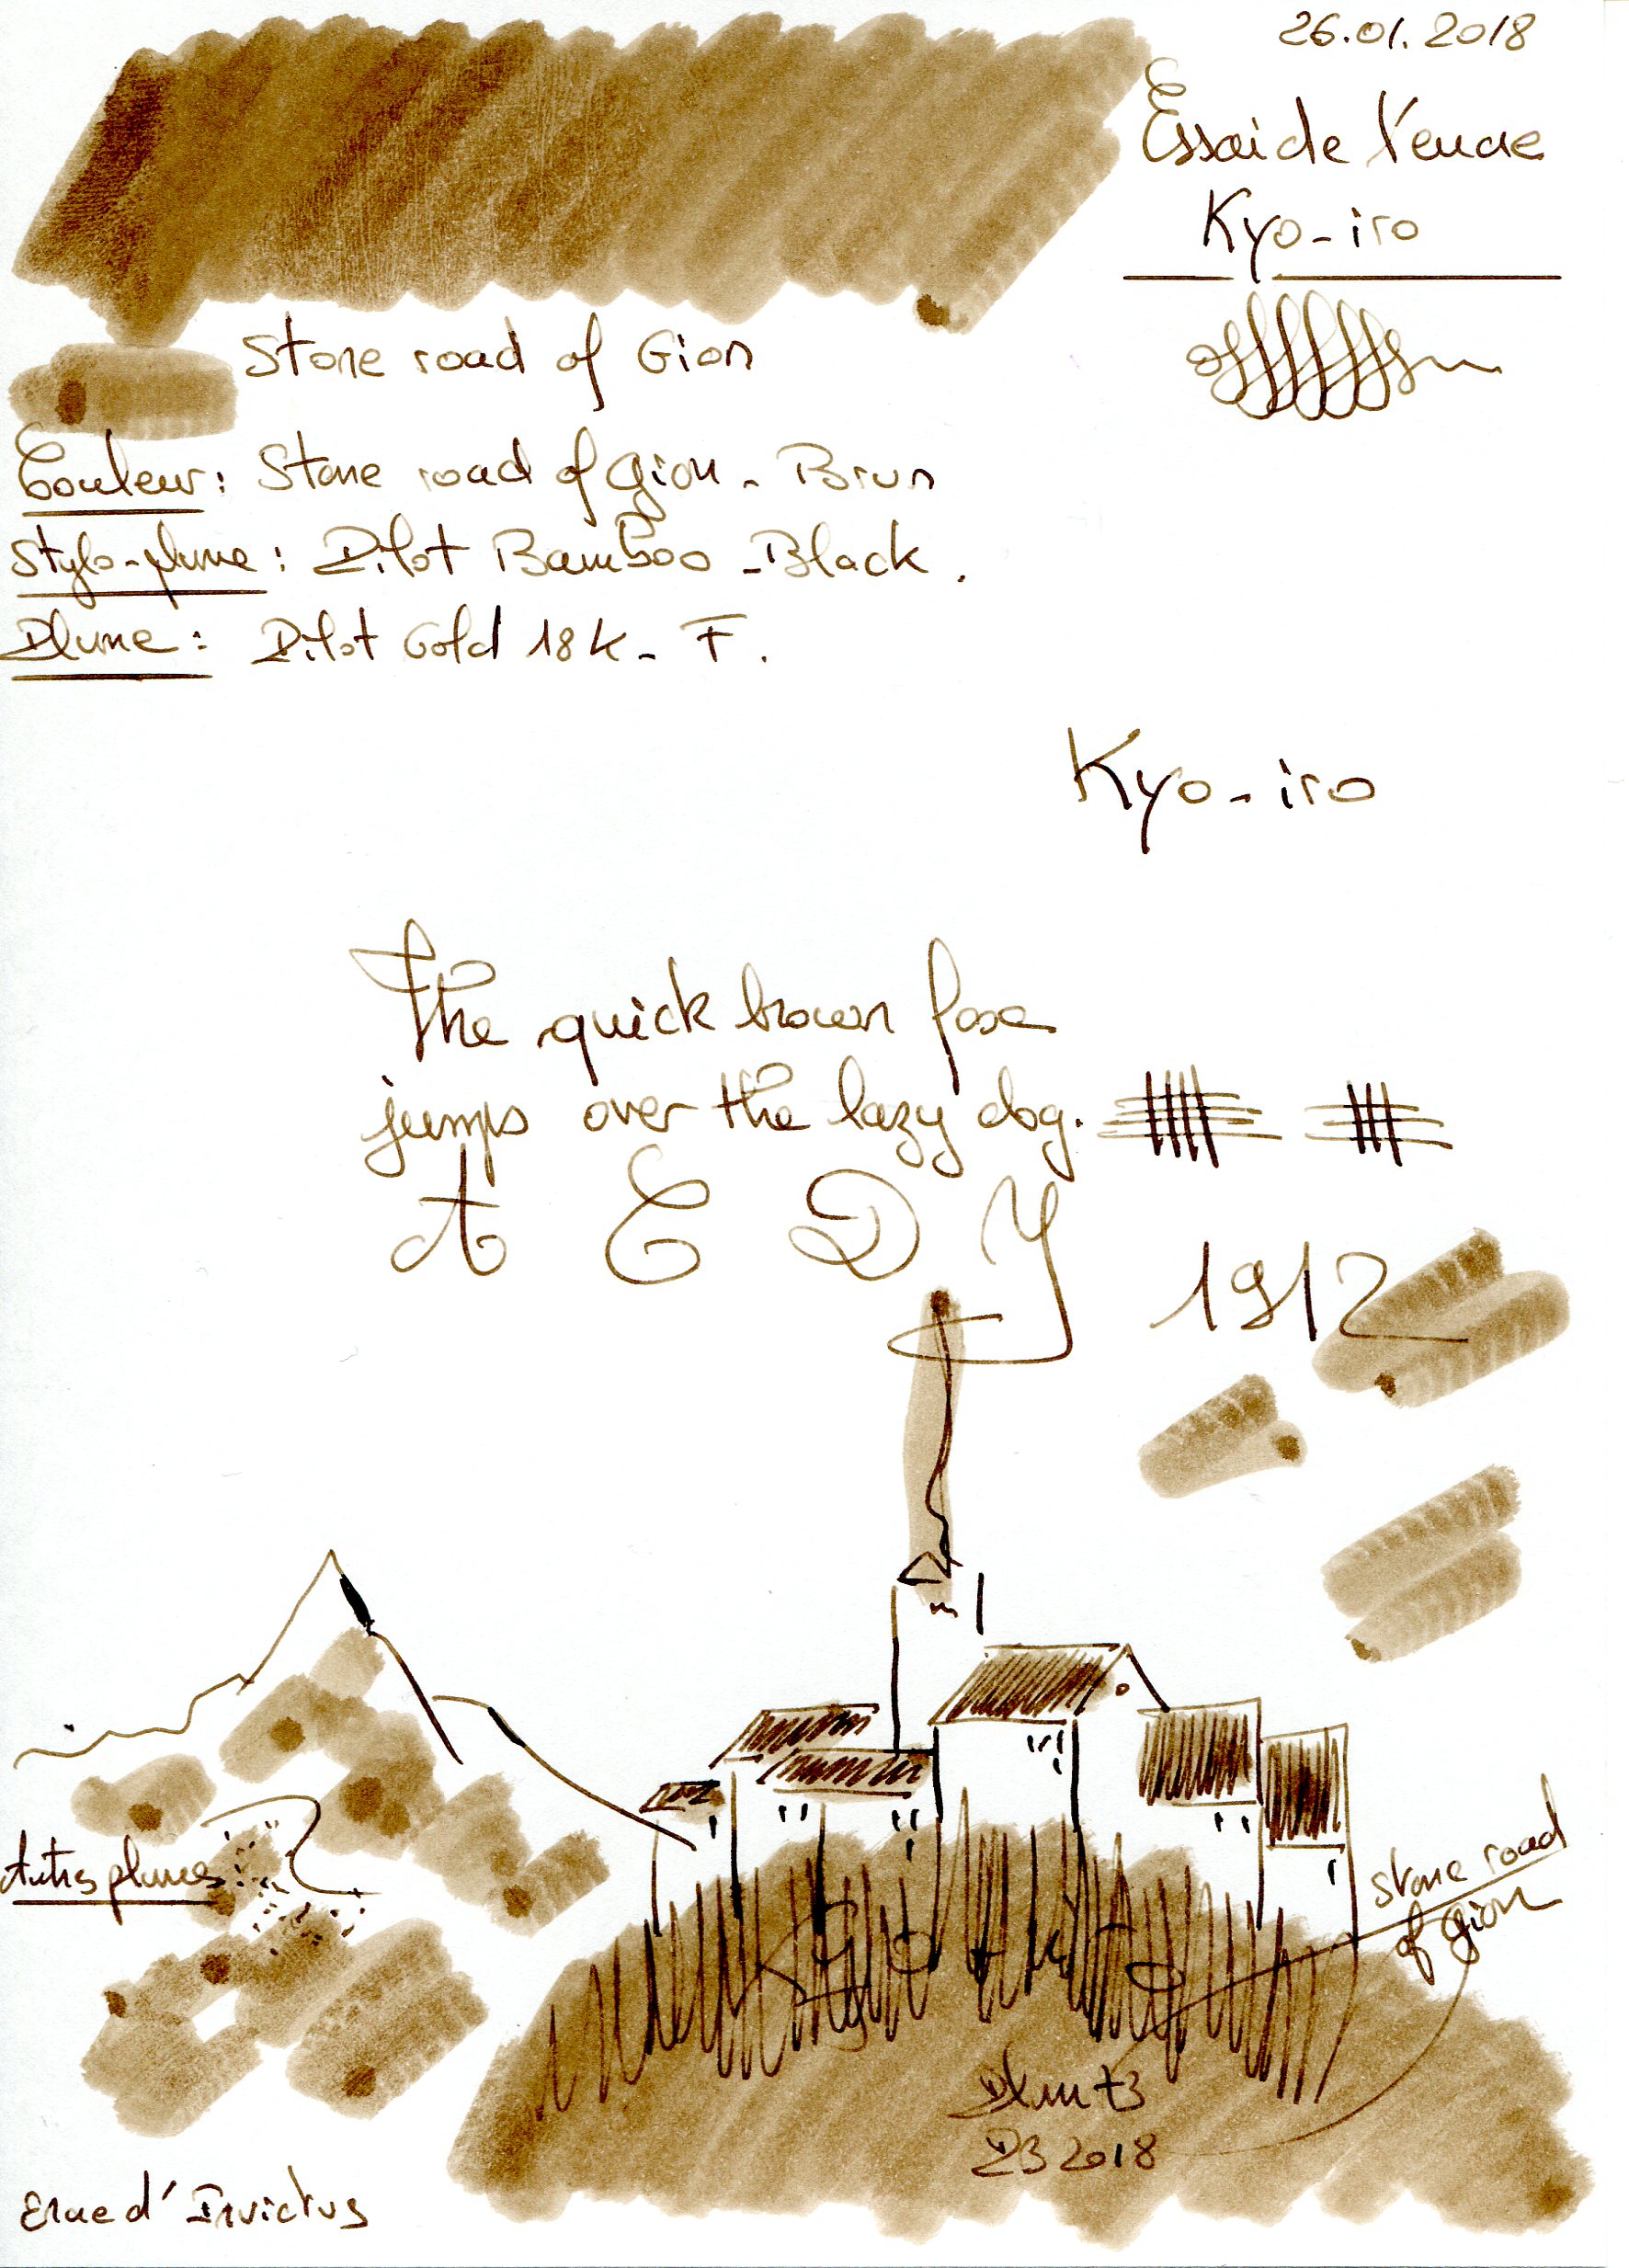 26.01.2018
Essai de l'encre
Kyo-iro
Stone road of Gion
Couleur: Stone road of Gion - Brun
Stylo-plume: Pilot Bamboo - Black.
Plume: Pilot Gold 18k - F.
Kyo-iro
The quick brown fox
jumps over the lazy dog.
A E D Y
1912
Autres plumes
stone road
of Gion
2018
Encre d'Invictus